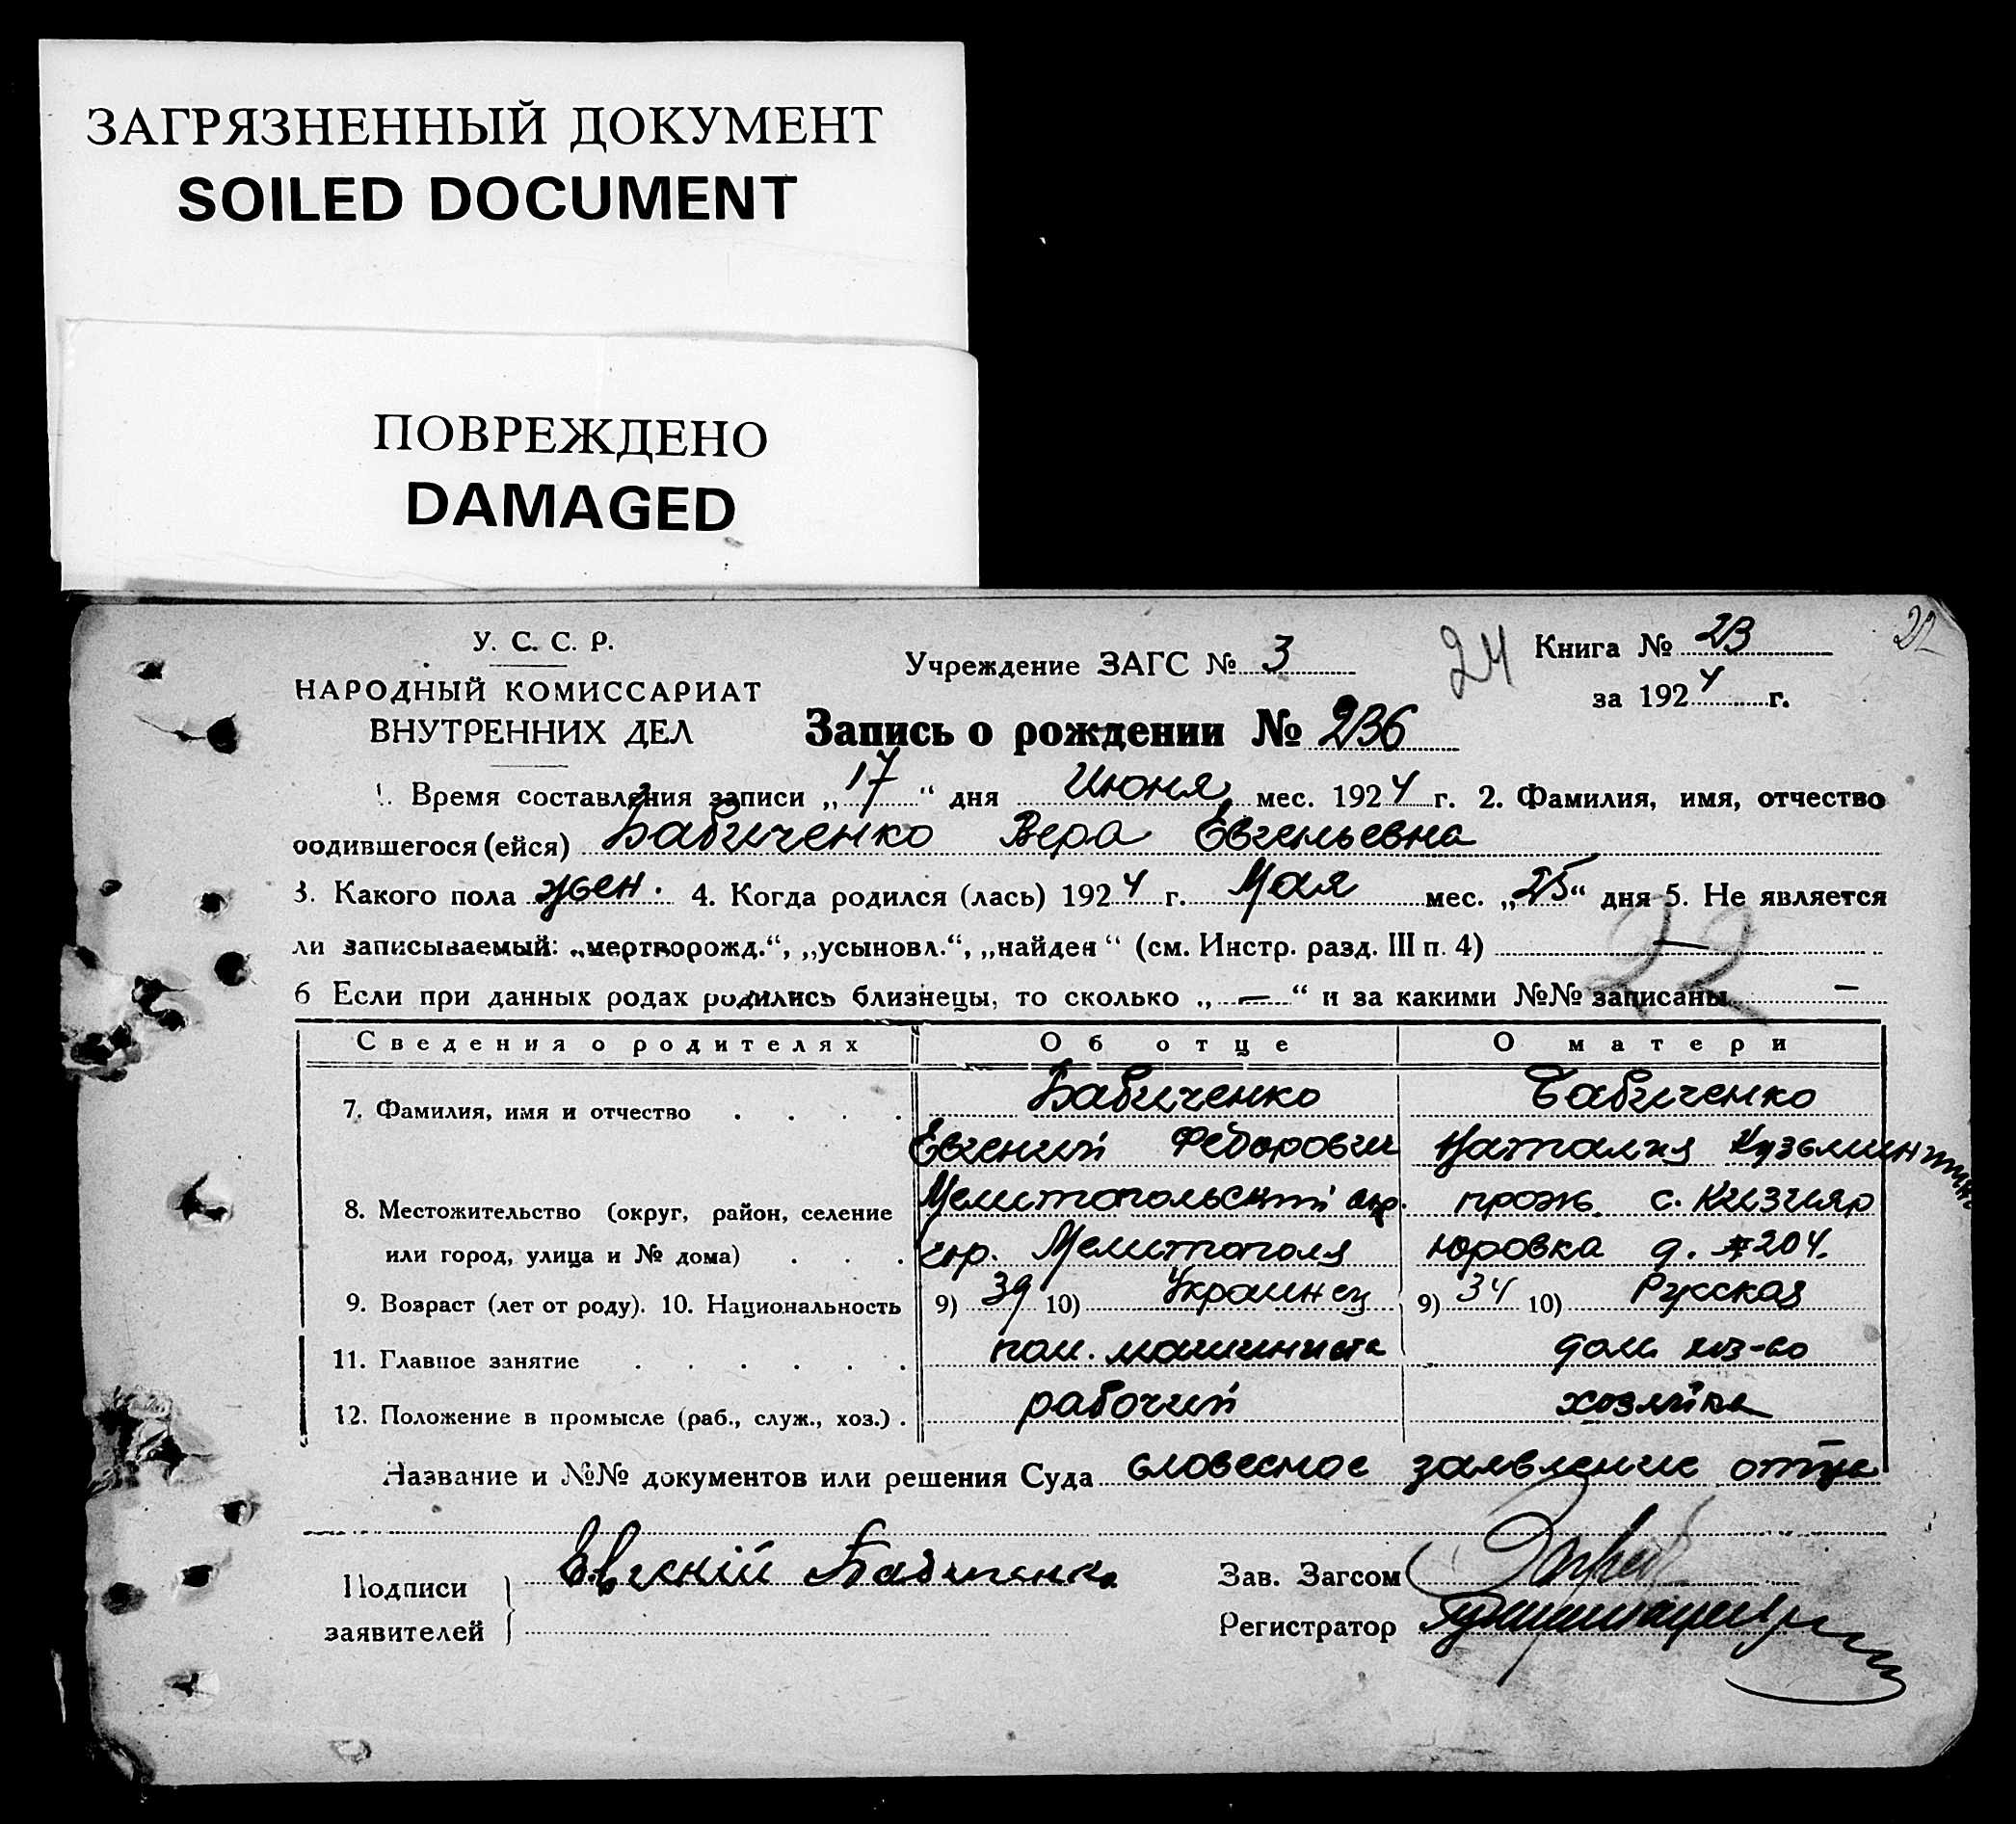 ЗАГРЯЗНЕННЫЙ ДОКУМЕНТ
SOILED DOCUMENT
ПОВРЕЖДЕНО
DAMAGED
22
У. С. С. Р.
НАРОДНЫЙ КОМИССАРИАТ
ВНУТРЕННИХ ДЕЛ
Учреждение ЗАГС № 3
24
Книга № 23
за 1924 г.
Запись о рождении № 236
1. Время составления записи „17“ дня Июня мес. 1924 г. 2. Фамилия, имя, отчество
родившегося (ейся) Бабиченко Вера Евгеньевна
3. Какого пола жен. 4. Когда родился (лась) 1924 г. Мая мес. „25“ дня 5. Не является
ли записываемый: „мертворожд.“, „усыновл.“, „найден“ (см. Инстр. разд. III п. 4) —
22
6 Если при данных родах родились близнецы, то сколько „—“ и за какими №№ записаны —
Сведения о родителях Об отце О матери
7. Фамилия, имя и отчество Бабиченко Бабиченко
Евгений Федорович Наталия Кузьминична
8. Местожительство (округ, район, селение Мелитопольский окр. прож. с. Кизияр
или город, улица и № дома) гор. Мелитополя Юровка д. #204.
9. Возраст (лет от роду). 10. Национальность 9) 39 10) Украинец 9) 34 10) Русская
11. Главное занятие пом. машиниста дом. хоз-во
12. Положение в промысле (раб., служ., хоз.) рабочий хозяйка
Название и №№ документов или решения Суда словесное заявление отца
Подписи заявителей Евгеній Бабиченко
Зав. Загсом
Регистратор